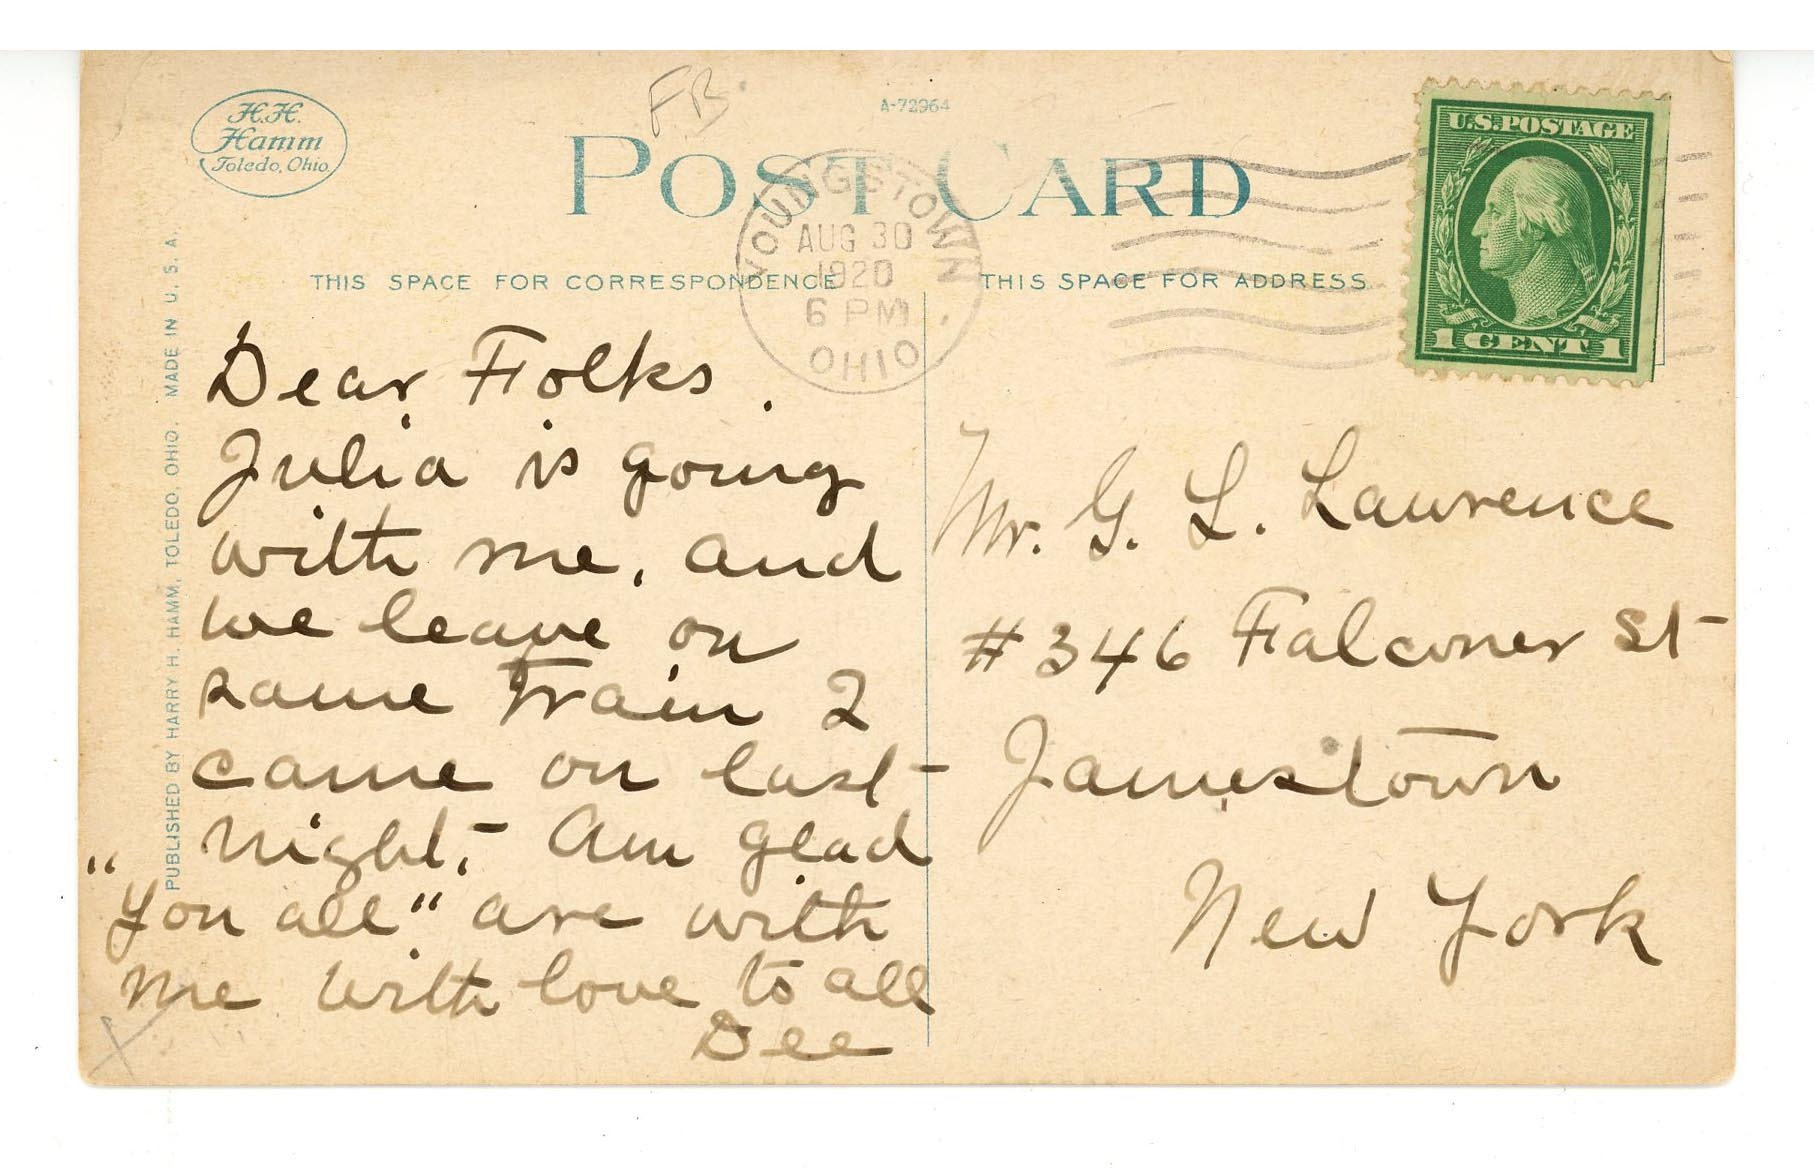 H.H.
Hamm
Toledo, Ohio.
FB
A-72964
POST CARD
YOUNGSTOWN
AUG 30
1920
6 PM
OHIO
U.S.POSTAGE
1 CENT 1
THIS SPACE FOR CORRESPONDENCE
THIS SPACE FOR ADDRESS
PUBLISHED BY HARRY H. HAMM, TOLEDO, OHIO. MADE IN U. S. A.
Dear Folks.
Julia is going
with me, and
we leave on
same train I
came on last
night, - Am glad
"you all" are with
me with love to all
Dee
Mr. G. L. Lawrence
#346 Falconer St
Jamestown
New York